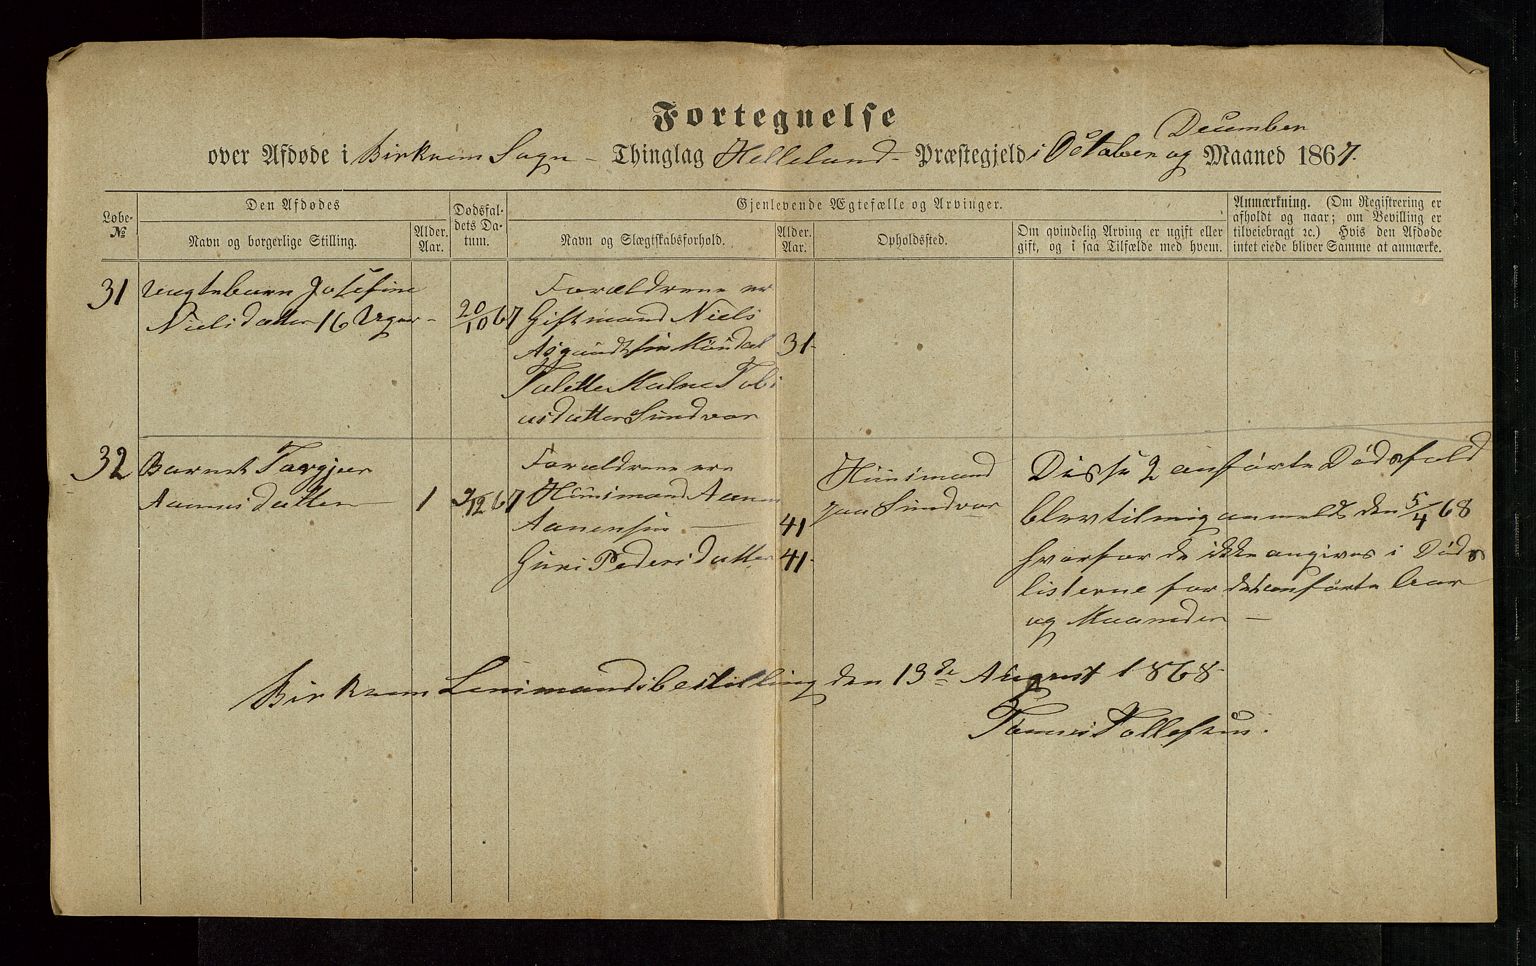 Fortegnelse
December
over Afdøde i Birkrem Sogn - Thinglag Helleland - Præstegjeld i October og Maaned 1867.
Løbe-
№
Den Afdødes
Navn og borgerlige Stilling.
Alder.
Aar.
Dødsfal-
dets Da-
tum.
Gjenlevende Ægtefælle og Arvinger.
Navn og Slægtskabsforhold.
Alder.
Aar.
Opholdssted.
Om qvindelig Arving er ugift eller
gift, og i saa Tilfælde med hvem.
Anmærkning. (Om Registrering er
afholdt og naar; om Bevilling er
tilveiebragt ꝛc.) Hvis den Afdøde
intet eiede bliver Samme at anmærke.
31 Josefine
Nielsdatter 16 Uger -
20/10 67
Forældrene er
Giftmand Niels
31.
Tobi
asdatter Sundvor
32 Barnet Torgjer
Aanensdatter 1 2/12 67
Forældrene ere
Huusmand Aanen
Aanensen — 41
Guri Pedersdatter 41.
Huusmand
paa Sundvor
Disse 2 anførte Dødsfald
blev til mig anmeldt den 5/4 68
hvorfor de ikke angives i Døds
listerne for det anførte Aar
og Maaneder —
Birkrem Lensmandsbestilling den 13de August 1868.
Tollefsen.